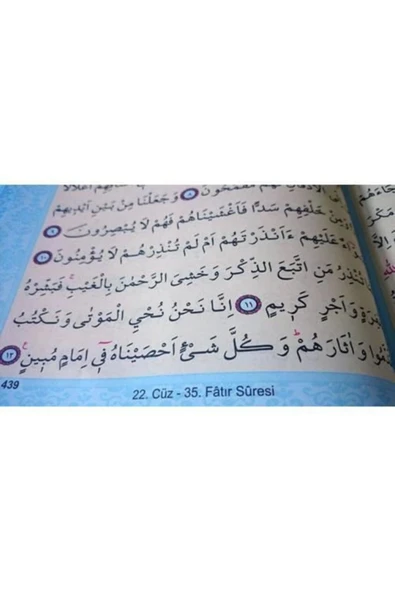 الْاَذْقَانِ فَهُمْ مُقْمَحُونَ ﴿٨﴾ وَجَعَلْنَا مِنْ بَيْنِ اَيْدِيهِمْ
خَلْفِهِمْ سَدًّا فَاَغْشَيْنَاهُمْ فَهُمْ لَا يُبْصِرُونَ ﴿٩﴾
عَلَيْهِمْ ءَاَنْذَرْتَهُمْ اَمْ لَمْ تُنْذِرْهُمْ لَا يُؤْمِنُونَ ﴿١٠﴾
تُنْذِرُ مَنِ اتَّبَعَ الذِّكْرَ وَخَشِىَ الرَّحْمٰنَ بِالْغَيْبِ فَبَشِّرْهُ
وَاَجْرٍ كَرِيمٍ ﴿١١﴾ اِنَّا نَحْنُ نُحْيِ الْمَوْتٰى وَنَكْتُبُ
وَاٰثَارَهُمْ وَكُلَّ شَىْءٍ اَحْصَيْنَاهُ فِى اِمَامٍ مُبِينٍ ﴿١٢﴾
439
22. Cüz - 35. Fâtır Sûresi